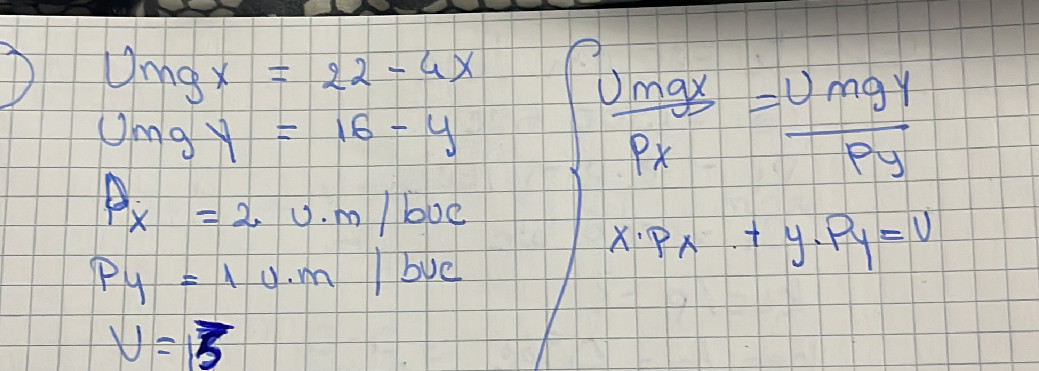 Umgx = 22 - 4x
Umgy = 16 - y
Px = 2 u.m / buc
Py = 1 u.m / buc
V =
Umgx / Px = Umgy / Py
x · Px + y · Py = V